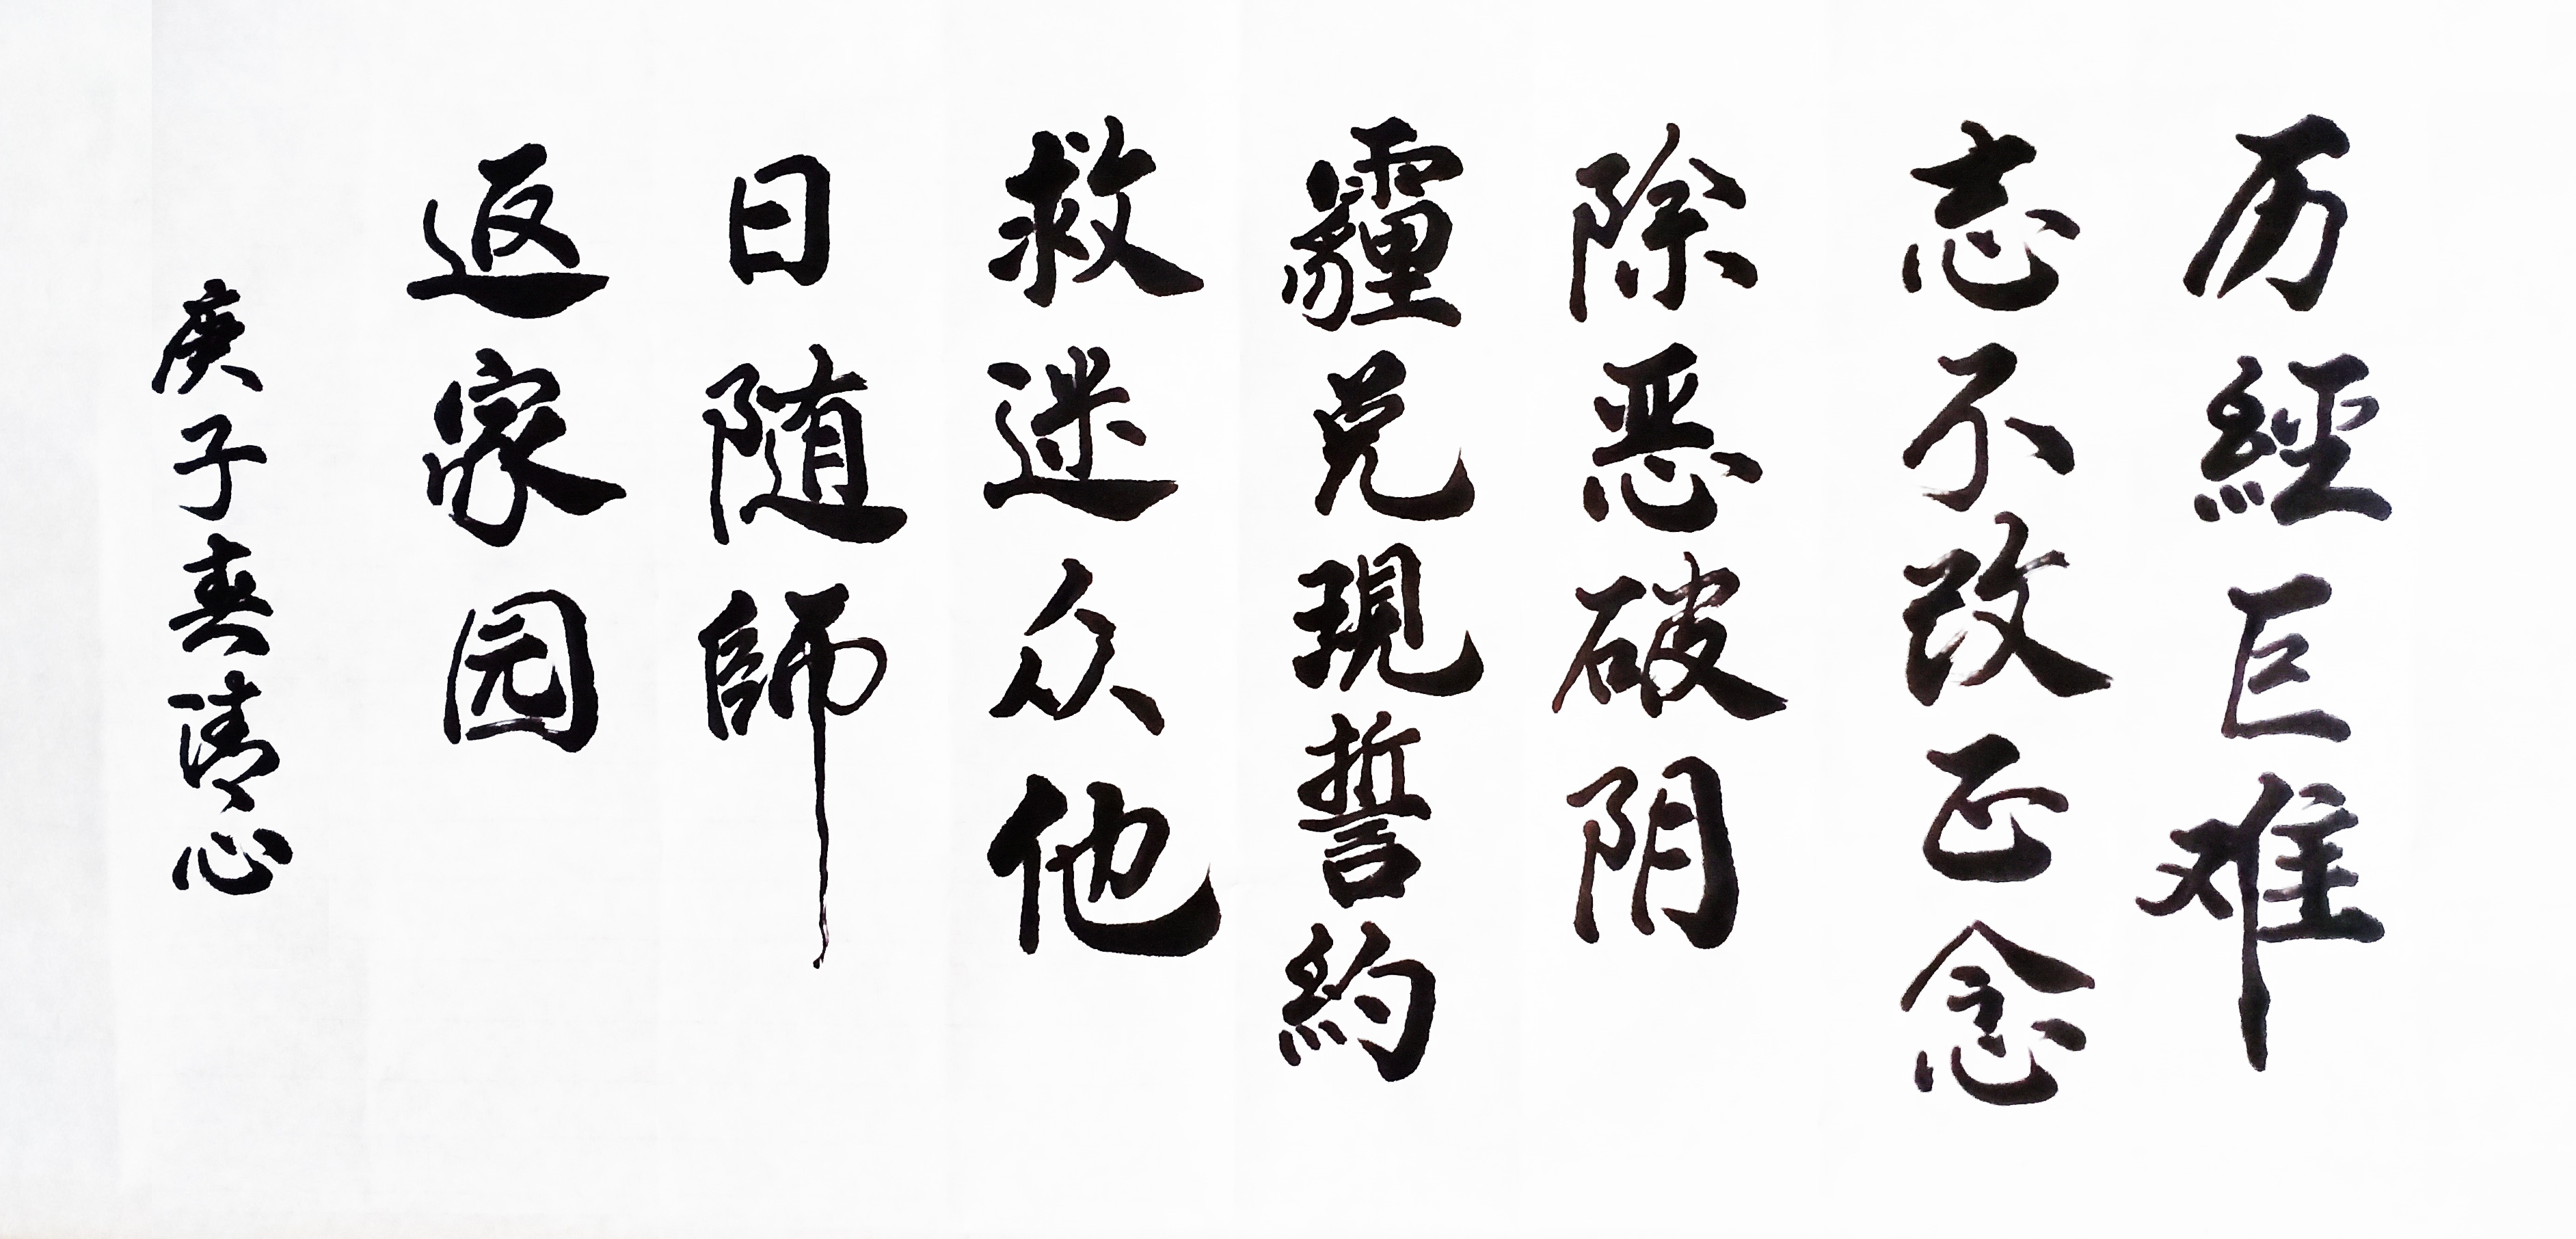 历經巨难
志不改正念
除恶破阴
霾兑現誓約
救迷众他
日随師
返家园
庚子春清心